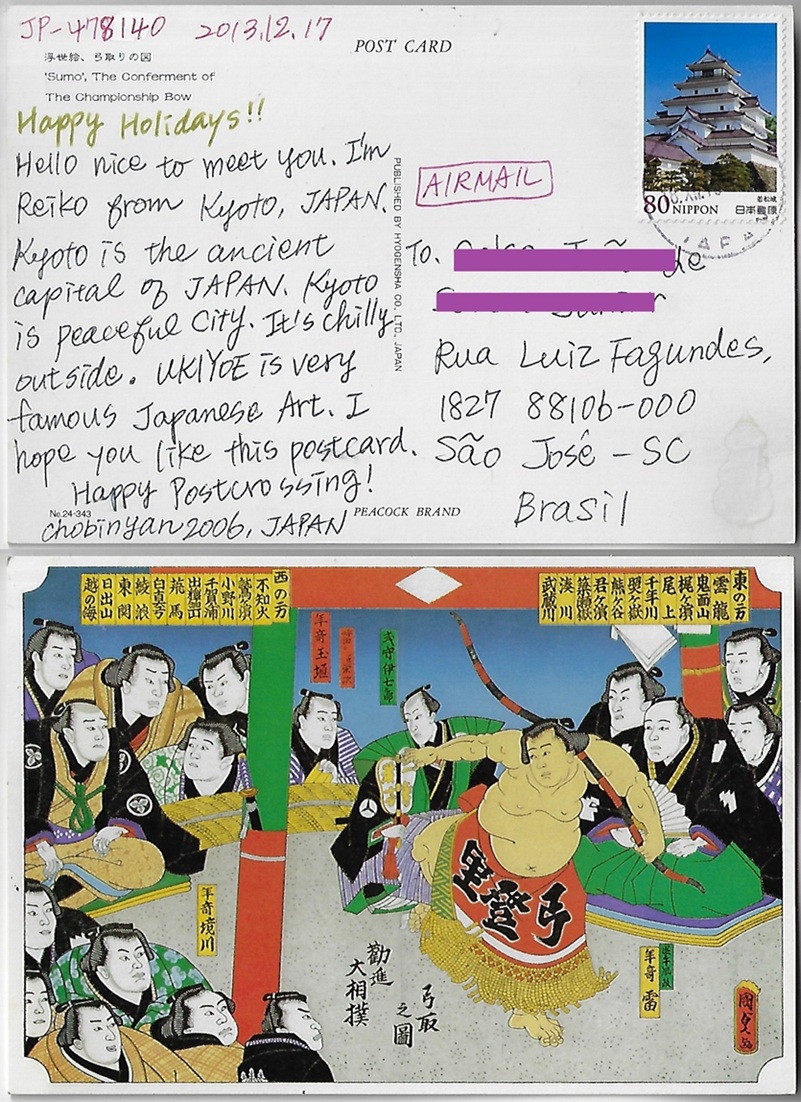 JP-478140 2013.12.17
浮世絵、弓取りの図
'Sumo', The Conferment of
The Championship Bow
POST CARD
Happy Holidays!!
Hello nice to meet you. I'm
Reiko from Kyoto, JAPAN.
Kyoto is the ancient
capital of JAPAN. Kyoto
is peaceful City. It's chilly
outside. UKIYOE is very
famous Japanese Art. I
hope you like this postcard.
Happy Postcrossing!
No.24-343
chobinyan2006, JAPAN
PEACOCK BRAND
PUBLISHED BY HYOGENSHA CO., LTD. JAPAN
AIRMAIL
80 NIPPON
若松城
日本郵便
JAPA
To.
de
Rua Luiz Fagundes,
1827 88106-000
São José - SC
Brasil
東の方
雲龍
鬼面山
梶ヶ濱
尾上
千年川
熊ヶ谷
君ヶ濱
湊川
武蔵川
西の方
不知火
鷲ヶ濱
小野川
千賀浦
出釋迦山
荒馬
白真弓
綾浪
東関
日出山
越の海
年寄玉垣
式守伊七郎
年寄境川
弓登里
勸進
大相撲
弓取
之圖
年寄雷
国貞画